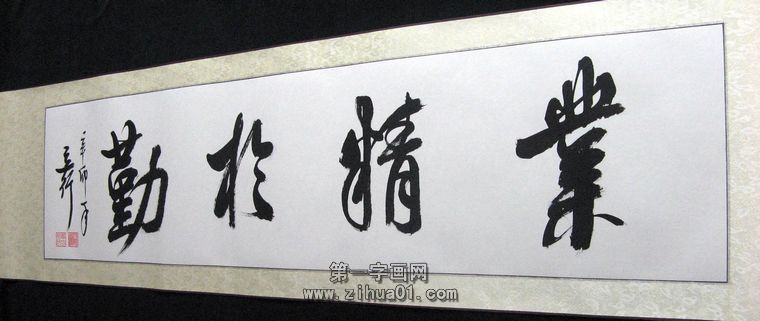 業精於勤
辛卯年
第一字画网
www.zihua01.com